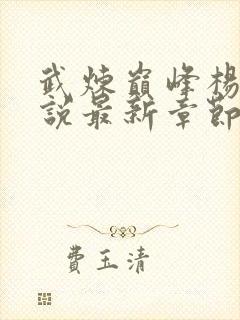 武煉巔峰楊
說最新章節
費玉清